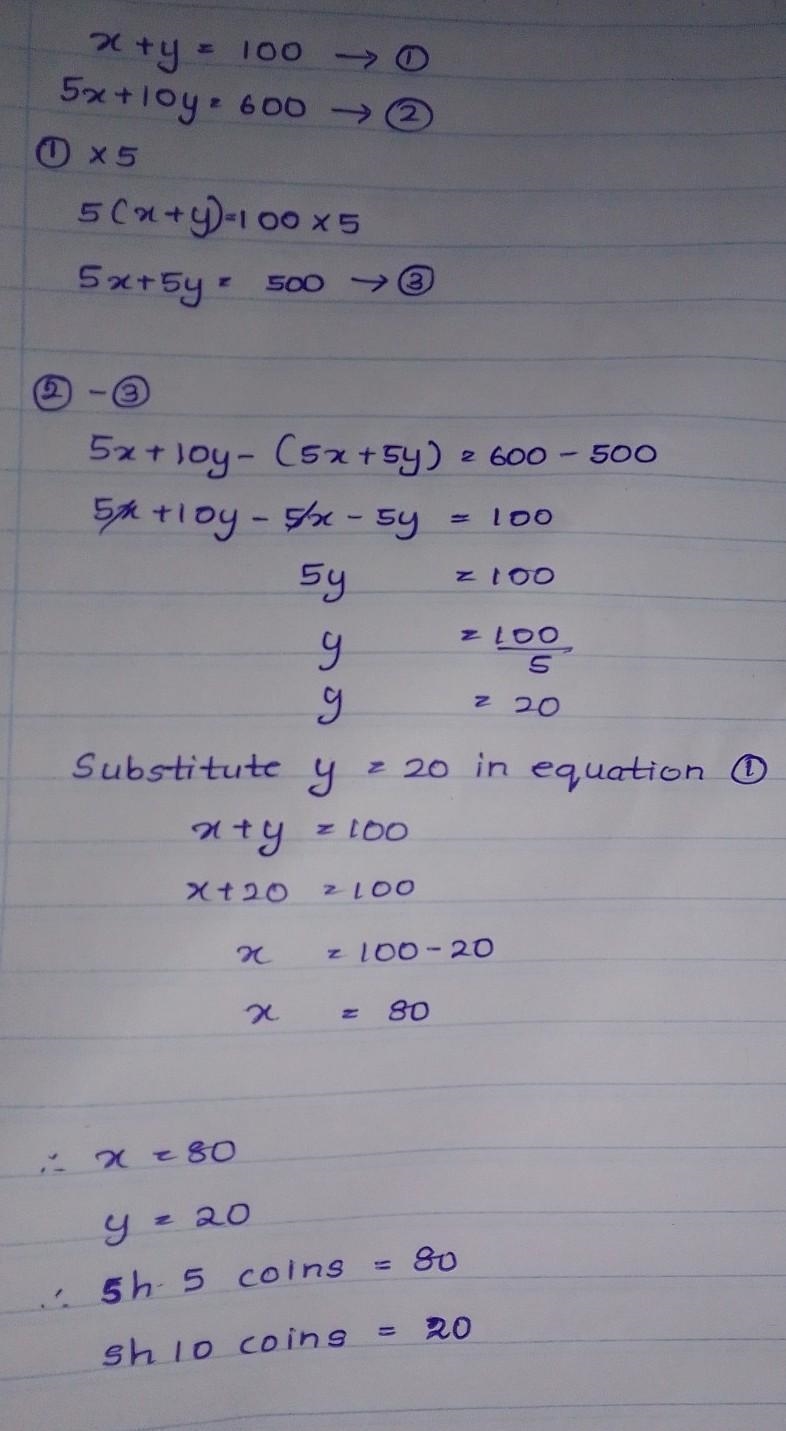 x + y = 100 → ①
5x + 10y = 600 → ②
① × 5
5(x + y) = 100 × 5
5x + 5y = 500 → ③
② - ③
5x + 10y - (5x + 5y) = 600 - 500
5x + 10y - 5x - 5y = 100
5y = 100
y = 100/5
y = 20
Substitute y = 20 in equation ①
x + y = 100
x + 20 = 100
x = 100 - 20
x = 80
∴ x = 80
y = 20
∴ sh. 5 coins = 80
sh 10 coins = 20